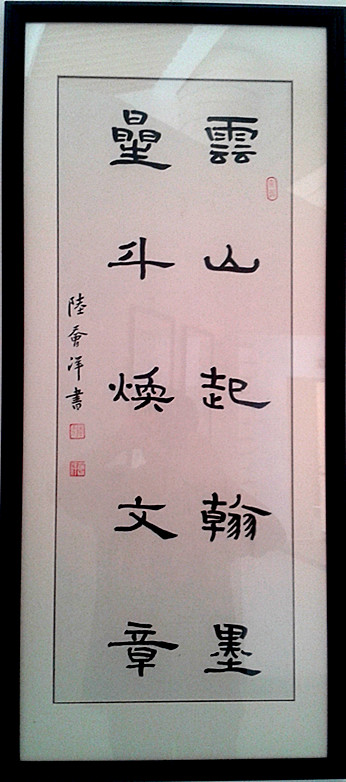 雲山起翰墨
星斗煥文章
陸會洋書